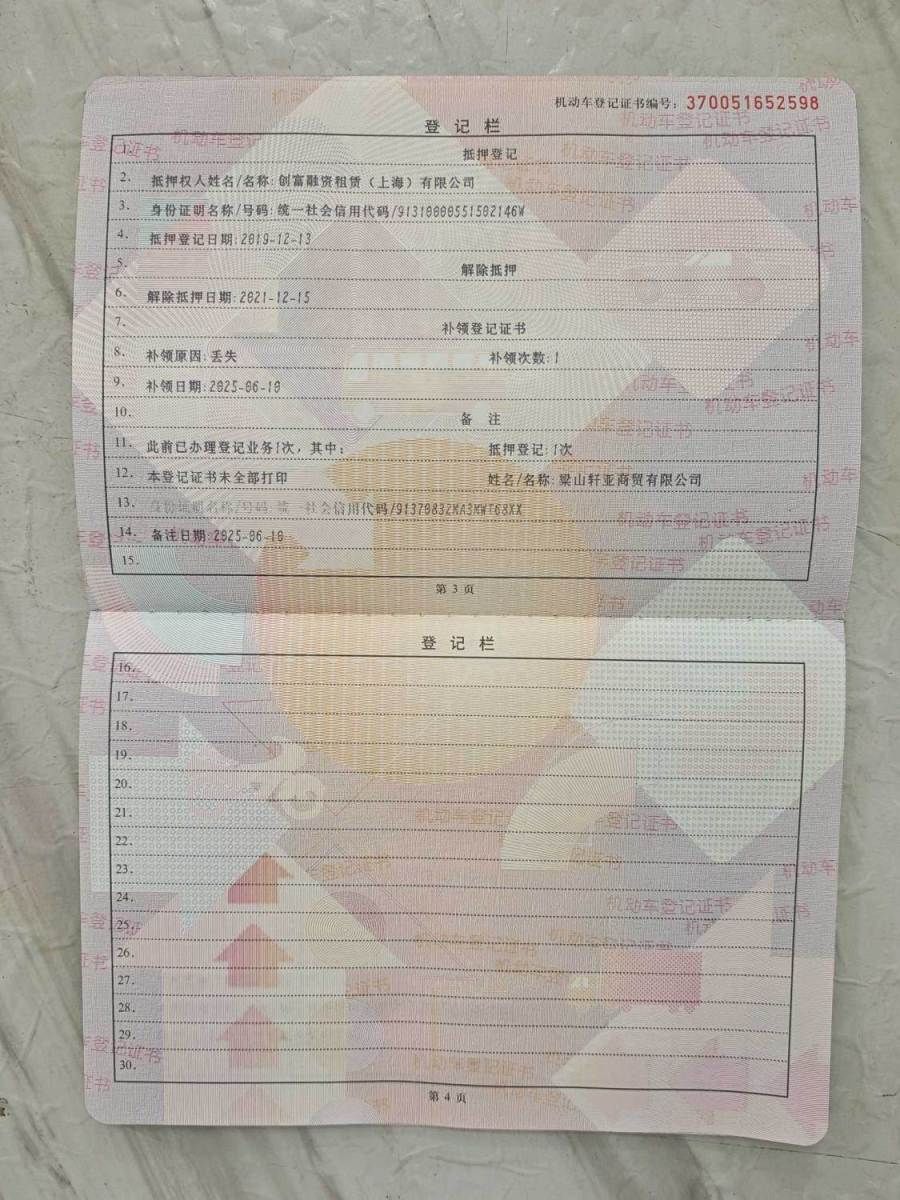 机动车登记证书编号：370051652598
登记栏
1. 抵押登记
2. 抵押权人姓名/名称:创富融资租赁（上海）有限公司
3. 身份证明名称/号码:统一社会信用代码/91310000551502146W
4. 抵押登记日期:2019-12-13
5. 解除抵押
6. 解除抵押日期:2021-12-15
7. 补领登记证书
8. 补领原因:丢失 补领次数:1
9. 补领日期:2025-06-10
10. 备 注
11. 此前已办理登记业务1次，其中： 抵押登记:1次
12. 本登记证书未全部打印 姓名/名称:梁山轩亚商贸有限公司
13. 身份证明名称/号码:统一社会信用代码/91370832MA3MWT68XX
14. 备注日期:2025-06-10
15.
第 3 页
登记栏
16.
17.
18.
19.
20.
21.
22.
23.
24.
25.
26.
27.
28.
29.
30.
第 4 页